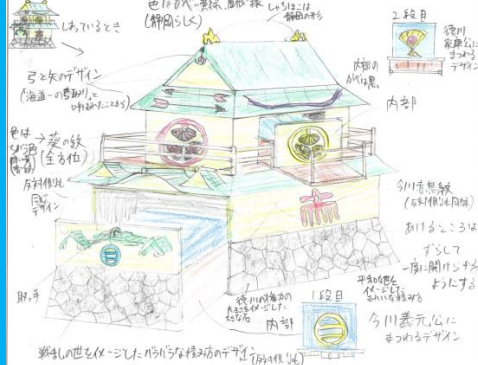 しまっているとき
(静岡らしく)
しゃちほこは
静岡の形
2段目
徳川
家康公に
まつわる
デザイン
弓と矢のデザイン
(海道一の弓取りと
呼ばれたことから)
内部の
かべは黒。
内部
色は
→葵の紋
(全方位)
反対側も
同じ
デザイン
今川赤鳥紋
(反対側も同様)
あけるところは
ずらして
一度に開けられる
ようにする
取っ手
徳川の権力の
大きさをイメージした
大きな石
内部
1段目
平和な世を
イメージした
きれいな積み方
今川義元公に
まつわるデザイン
戦乱の世をイメージしたバラバラな積み方のデザイン
(反対側も)